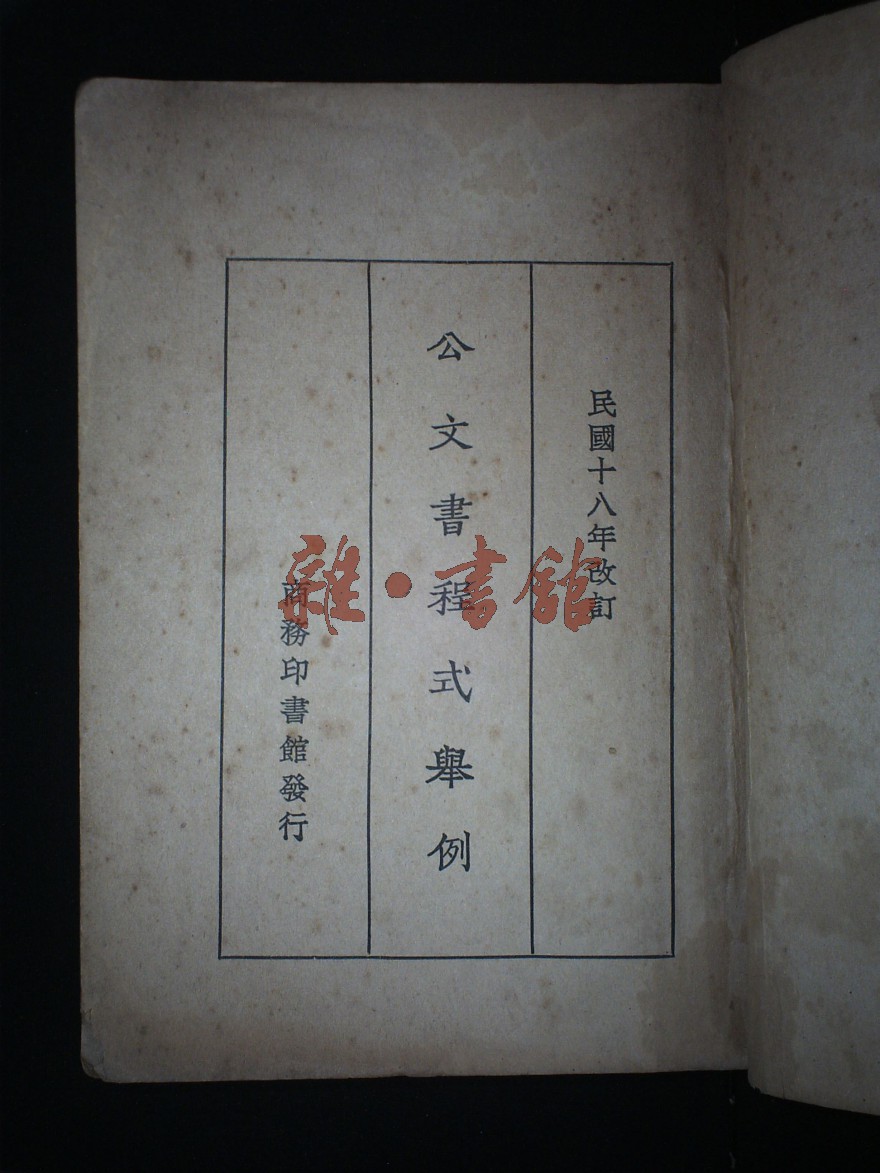 民國十八年改訂
公文書程式舉例
商務印書館發行
雜·書館